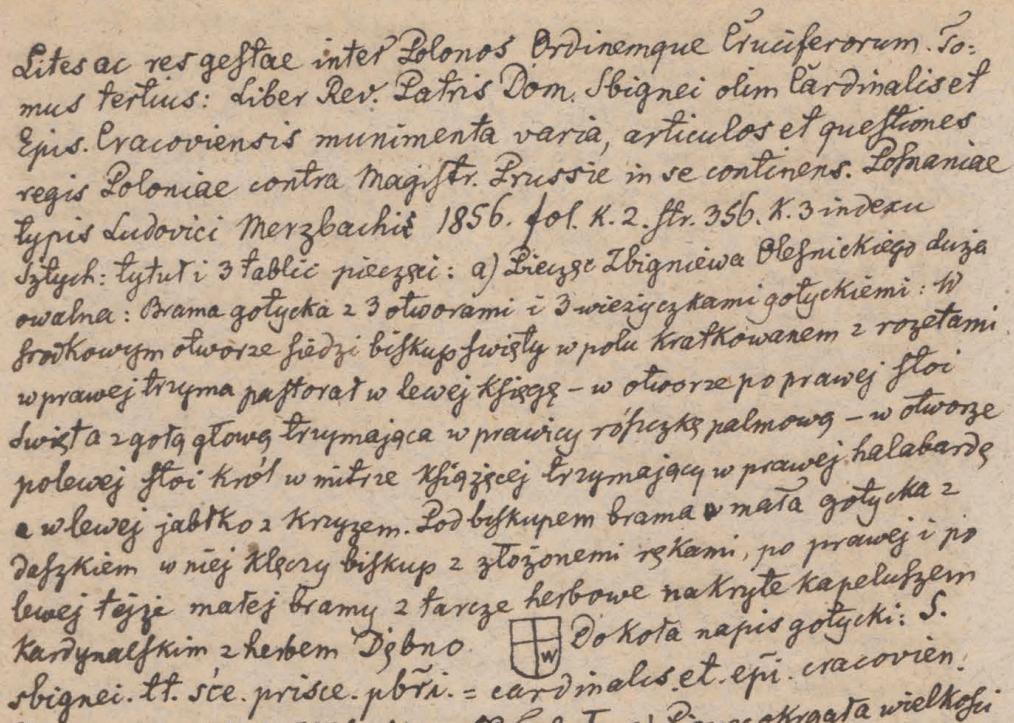 Lites ac res gestae inter Polonos Ordinemque Cruciferorum. To:
mus tertius: Liber Rev. Patris Dom. Sbignei olim Cardinalis et
Epis. Cracoviensis munimenta varia, articulos et questiones
regis Poloniae contra Magistr. Prussie in se continens. Posnaniae
typis Ludovici Merzbachi 1856. fol. K. 2. str. 356. K. 3 indexu
Sztych: tytuł i 3 tablic pieczęci: a) Pieczęć Zbigniewa Oleśnickiego duża
owalna: Brama gotycka z 3 otworami i 3 wieżyczkami gotyckiemi: W
środkowym otworze siedzi biskup święty w polu kratkowanem z rozetami
w prawej trzyma pastorał w lewej księgę – w otworze po prawej stoi
Święta z gołą głową trzymająca w prawicy rószczkę palmową – w otworze
po lewej stoi król w mitrze książęcej trzymający w prawej halabardę
w lewej jabłko z krzyzem. Pod biskupem brama mała gotycka z
daszkiem w niej klęczy biskup z złożonemi rękami, po prawej i po
lewej tejże małej bramy 2 tarcze herbowe nakryte kapeluszem
Kardynalskim z herbem Dębno W Dokoła napis gotycki: S.
sbignei. tt. sce. prisce. pbri. = cardinalis. et. epi. cracovien.
okrągła wielkości